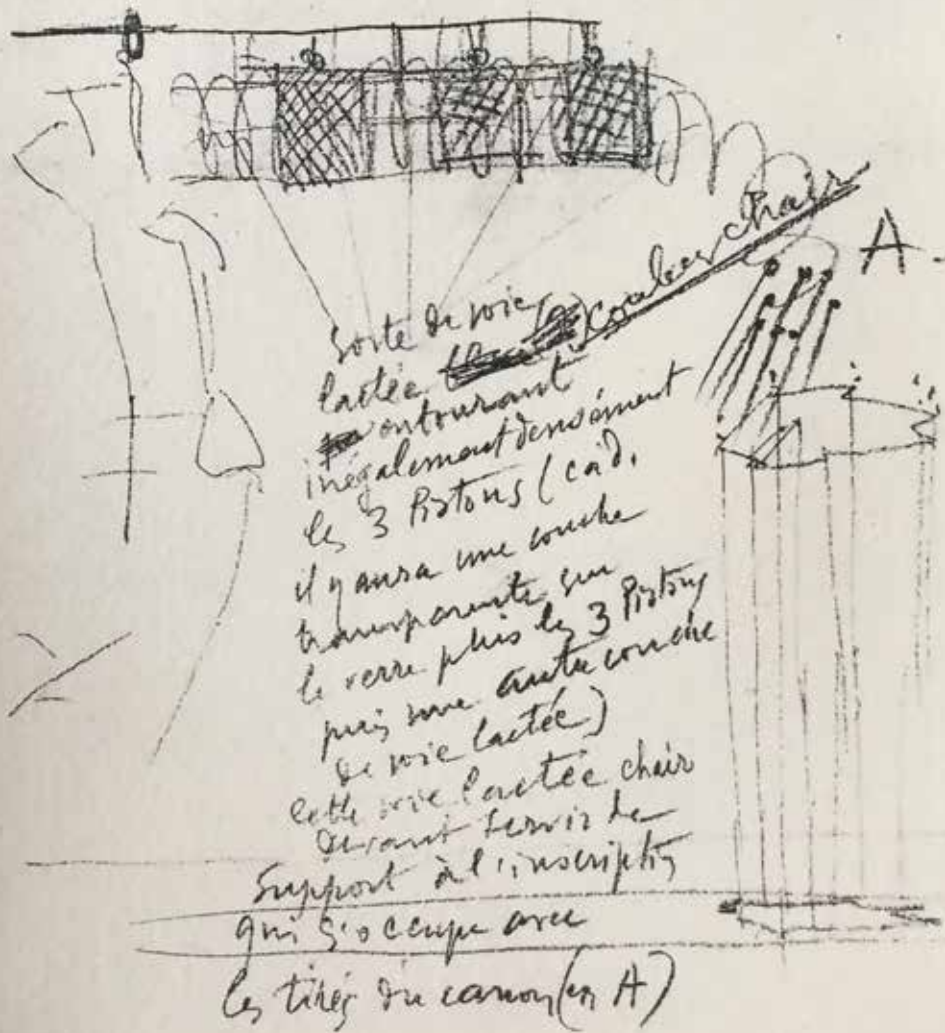 A.
Sorte de voie
lactée couleur chair
entourant
inégalement densément
les 3 Pistons (càd.
il y aura une couche
transparente sur
le verre puis les 3 Pistons
puis une autre couche
de voie lactée)
cette voie lactée chair
devant servir de
support à l'inscription
qui s'occupe avec
les tirés du canon (en A)